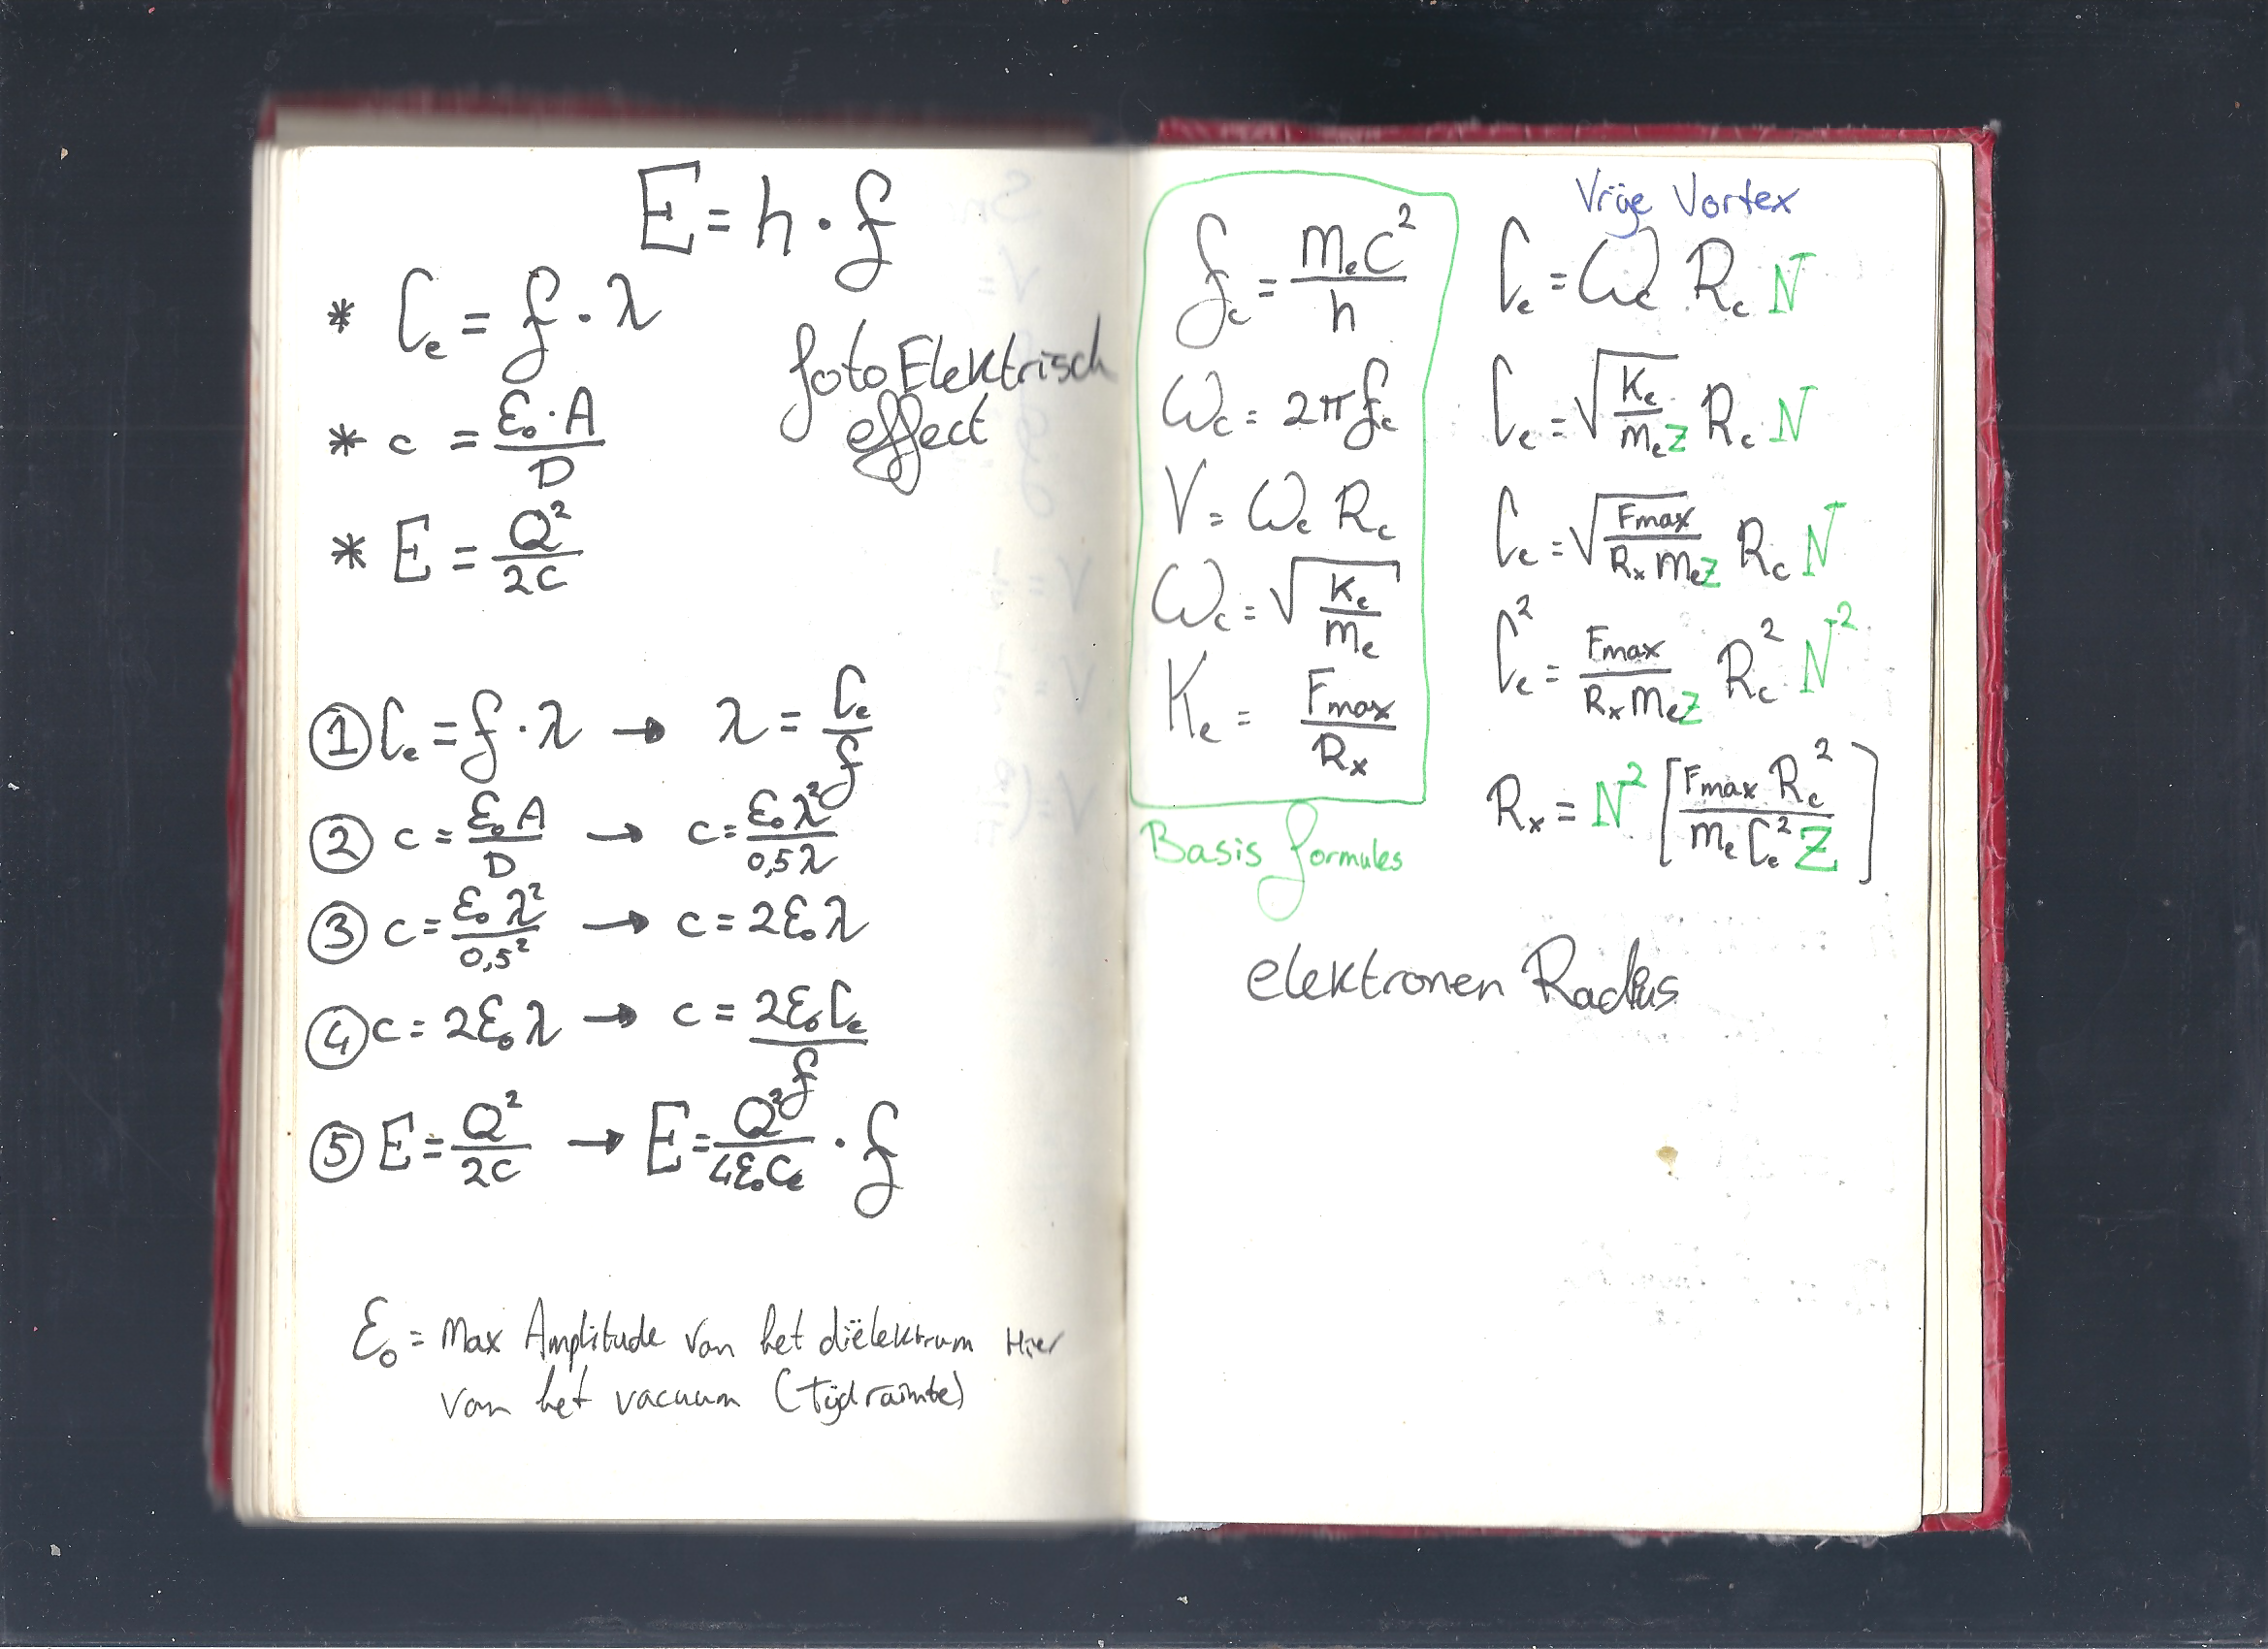 E = h · f
* Cₑ = f · λ
fotoElektrisch
effect
* c = ε₀ · A / D
* E = Q² / 2c
① Cₑ = f · λ → λ = Cₑ / f
② c = ε₀ A / D → c = ε₀ λ² / 0,5 λ
③ c = ε₀ λ² / 0,5² → c = 2ε₀ λ
④ c = 2ε₀ λ → c = 2ε₀ Cₑ / f
⑤ E = Q² / 2c → E = Q² / 4ε₀Cₑ · f
ε₀ = Max Amplitude van het diëlektrum Hier
van het vacuum (tijdruimte)
f_c = mₑc² / h
ω_c = 2πf_c
V = ω_c R_c
ω_c = √(Kₑ / mₑ)
Kₑ = Fmax / Rₓ
Basis formules
Vrije Vortex
Cₑ = ω_c R_c N
Cₑ = √(Kₑ / mₑZ) R_c N
Cₑ = √(Fmax / Rₓ mₑZ) R_c N
Cₑ² = Fmax / Rₓ mₑZ R_c² N²
Rₓ = N² [Fmax R_c² / mₑ Cₑ² Z]
elektronen Radius